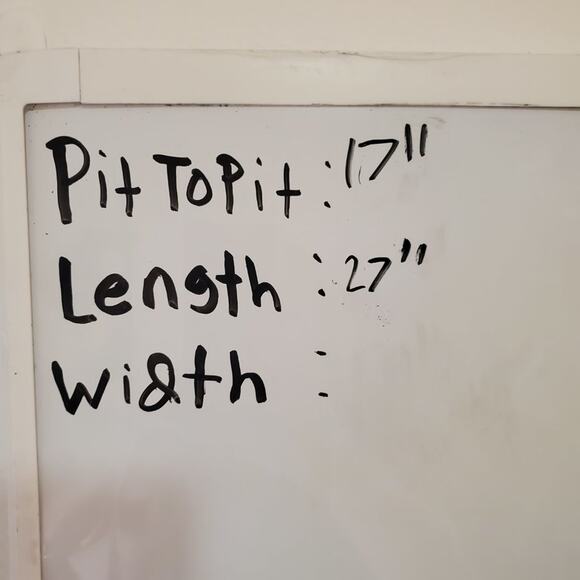 Pit To Pit : 17"
Length : 27"
Width :